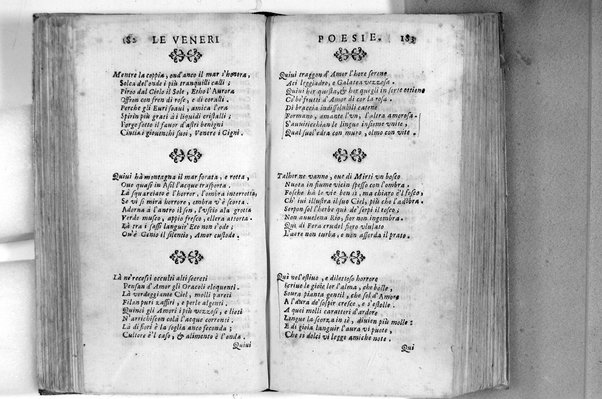 182 LE VENERI
Mentre la coppia, ond'anco il mar s'honora,
Solca dell'onde i più tranquilli calli;
Piroo dal Cielo il Sole, Etho l'Aurora
Offron con fren di rose, e di coralli.
Perche gli Euri soaui, amica l'ora
Spirin più grati à i liquidi cristalli;
Forge sotto il fauor d'astri benigni
Ciuita i giouenchi suoi, Venere i Cigni.
Quiui hà montagna il mar forata, e rotta,
Oue quasi in Asil l'acque trasporta.
Lo squarciato è l'horror, l'ombra interrotta,
Se vi si mira horrore, ombra v'è scorta.
Adorna à l'antro il sen, l'vscio ala grotta
Verde musco, appio fresco, ellera attorta.
Là tra i sassi languir' Eto non s'ode;
Ou'è Genio il silentio, Amor custode.
Là ne' recessi occulti alti secreti
Pensan d'Amor gli Oracoli eloquenti.
Là verdeggiante Ciel, molli pareti
Filan puri zaffiri, e perle algenti.
Quinci gli Amori i più vezzosi, e lieti
N'arrichiscon colà l'acque correnti.
Là di fiori è la soglia anco feconda;
Cultore è'l caso, & alimento è l'onda.
Quiui
POESIE. 183
Quiui traggon d'Amor l'hore serene
Aci leggiadro, e Galatea vezzosa.
Quei her questa, & hor quegli in sorte ottiene
Co'be' frutti d'Amor di cor la rosa.
Di braccia indissolubili catene
Formano, amante l'vn, l'altra amorosa.
S'auuiticchian le lingue insieme vnite,
Qual suol'edra con muro, olmo con vite.
Talhor ne vanno, oue di Mirti vn bosco
Nuota in fiume vicin spesso con l'ombra.
Fosche hà le vie ben sì, ma chiaro è'l fosco,
Ch' iui illustra il suo Ciel, più che l'adombra.
Serpon sol l'herbe què de'serpi il tosco,
Non auuelena Rio, fior non ingombra.
Qui di Fera crudel fiero vlulato
L'aere non turba, e non assorda il prato.
Qui vol'estiuo, e dilettoso horrore
Scriue le gioie lor l'alma, che bolle,
Soura pianta gentil, che sol d'Amore
A l'aura de'sospir cresce, e s'estolle.
A quei molli caratteri d'ardore
Langue la scorza in sè, diuien più molle:
E di gioia languir l'aura vi puote,
Che sì dolci vi legge amiche note.
Qui